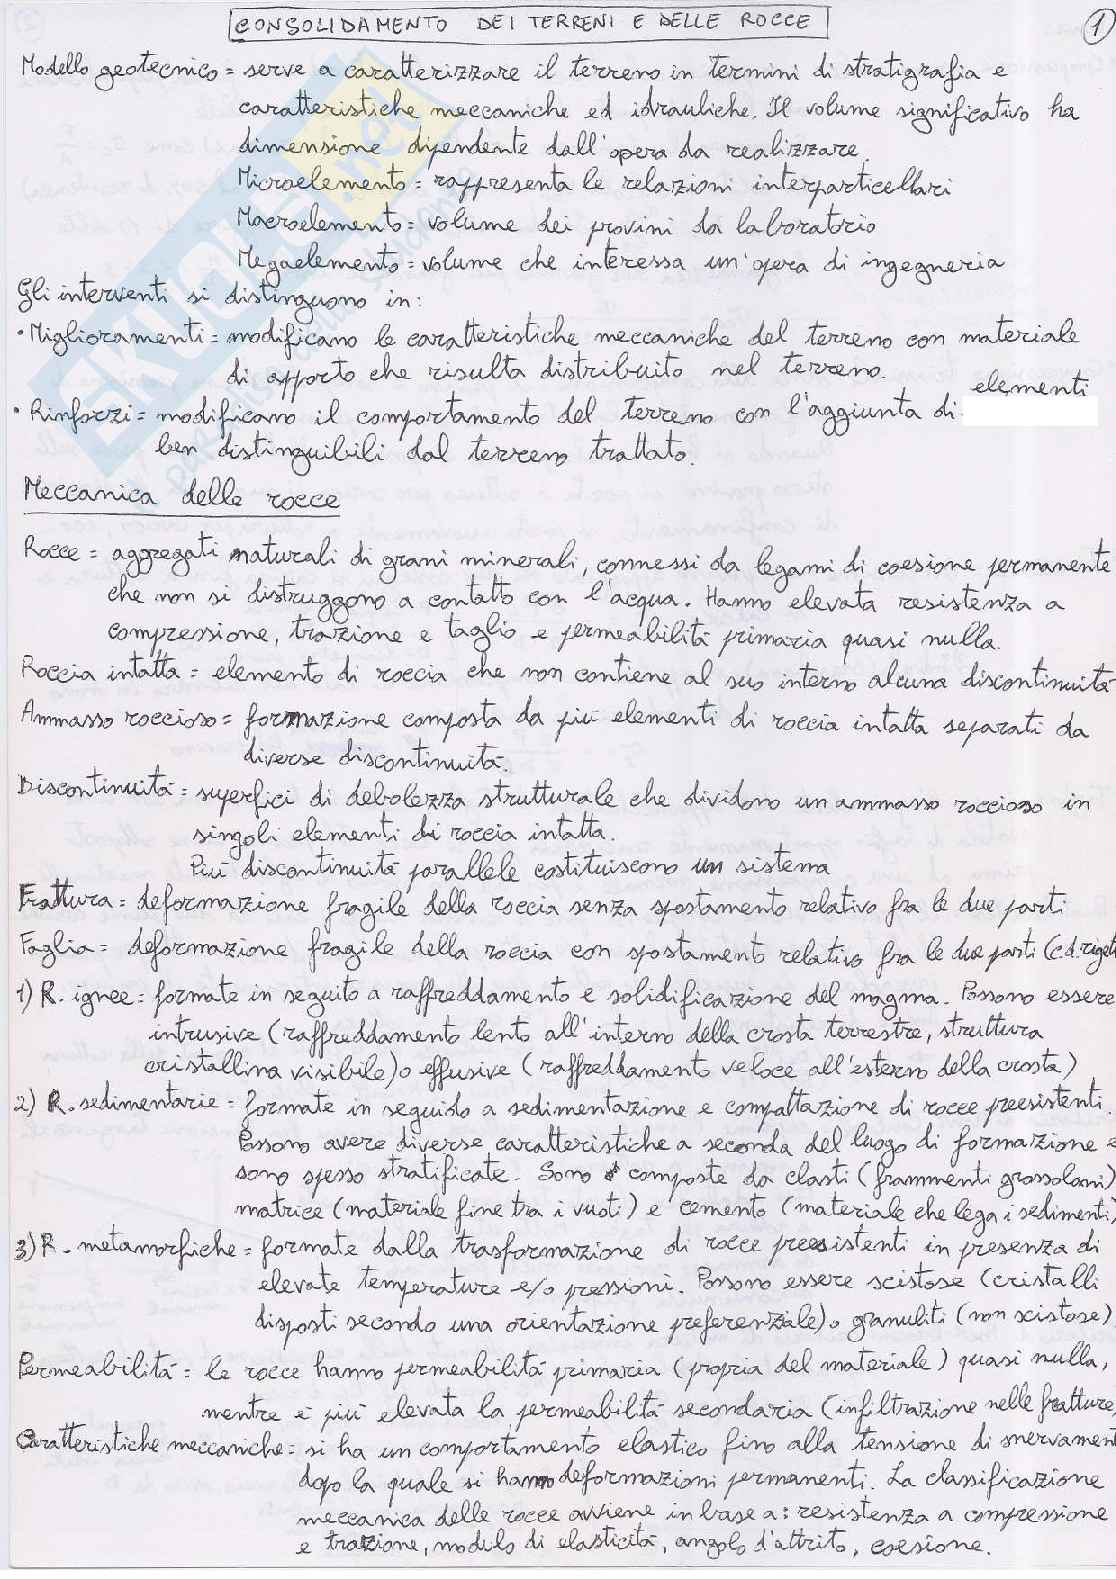 CONSOLIDAMENTO DEI TERRENI E DELLE ROCCE
1
Modello geotecnico = serve a caratterizzare il terreno in termini di stratigrafia e
caratteristiche meccaniche ed idrauliche. Il volume significativo ha
dimensione dipendente dall'opera da realizzare.
Microelemento = rappresenta le relazioni interparticellari
Macroelemento = volume dei provini da laboratorio
Megaelemento = volume che interessa un'opera di ingegneria
Gli interventi si distinguono in:
• Miglioramenti = modificano le caratteristiche meccaniche del terreno con materiale
di apporto che risulta distribuito nel terreno.
• Rinforzi = modificano il comportamento del terreno con l'aggiunta di elementi
ben distinguibili dal terreno trattato.
Meccanica delle rocce
Rocce = aggregati naturali di grani minerali, connessi da legami di coesione permanente
che non si distruggono a contatto con l'acqua. Hanno elevata resistenza a
compressione, trazione e taglio e permeabilità primaria quasi nulla.
Roccia intatta = elemento di roccia che non contiene al suo interno alcuna discontinuità
Ammasso roccioso = formazione composta da più elementi di roccia intatta separati da
diverse discontinuità.
Discontinuità = superfici di debolezza strutturale che dividono un ammasso roccioso in
singoli elementi di roccia intatta.
Più discontinuità parallele costituiscono un sistema
Frattura = deformazione fragile della roccia senza spostamento relativo fra le due parti
Faglia = deformazione fragile della roccia con spostamento relativo fra le due parti (c.d. rigetto
1) R. ignee = formate in seguito a raffreddamento e solidificazione del magma. Possono essere
intrusive (raffreddamento lento all'interno della crosta terrestre, struttura
cristallina visibile) o effusive (raffreddamento veloce all'esterno della crosta)
2) R. sedimentarie = formate in seguido a sedimentazione e compattazione di rocce preesistenti.
Possono avere diverse caratteristiche a seconda del luogo di formazione e
sono spesso stratificate. Sono composte da clasti (frammenti grossolani)
matrice (materiale fine tra i vuoti) e cemento (materiale che lega i sedimenti)
3) R. metamorfiche = formate dalla trasformazione di rocce preesistenti in presenza di
elevate temperature e/o pressioni. Possono essere scistose (cristalli
disposti secondo una orientazione preferenziale) o granuliti (non scistose)
Permeabilità = le rocce hanno permeabilità primaria (propria del materiale) quasi nulla,
mentre è più elevata la permeabiltà secondaria (infiltrazione nelle fratture)
Caratteristiche meccaniche = si ha un comportamento elastico fino alla tensione di snervament
dopo la quale si hanno deformazioni permanenti. La classificazione
meccanica delle rocce avviene in base a: resistenza a compressione
e trazione, modulo di elasticità, angolo d'attrito, coesione.